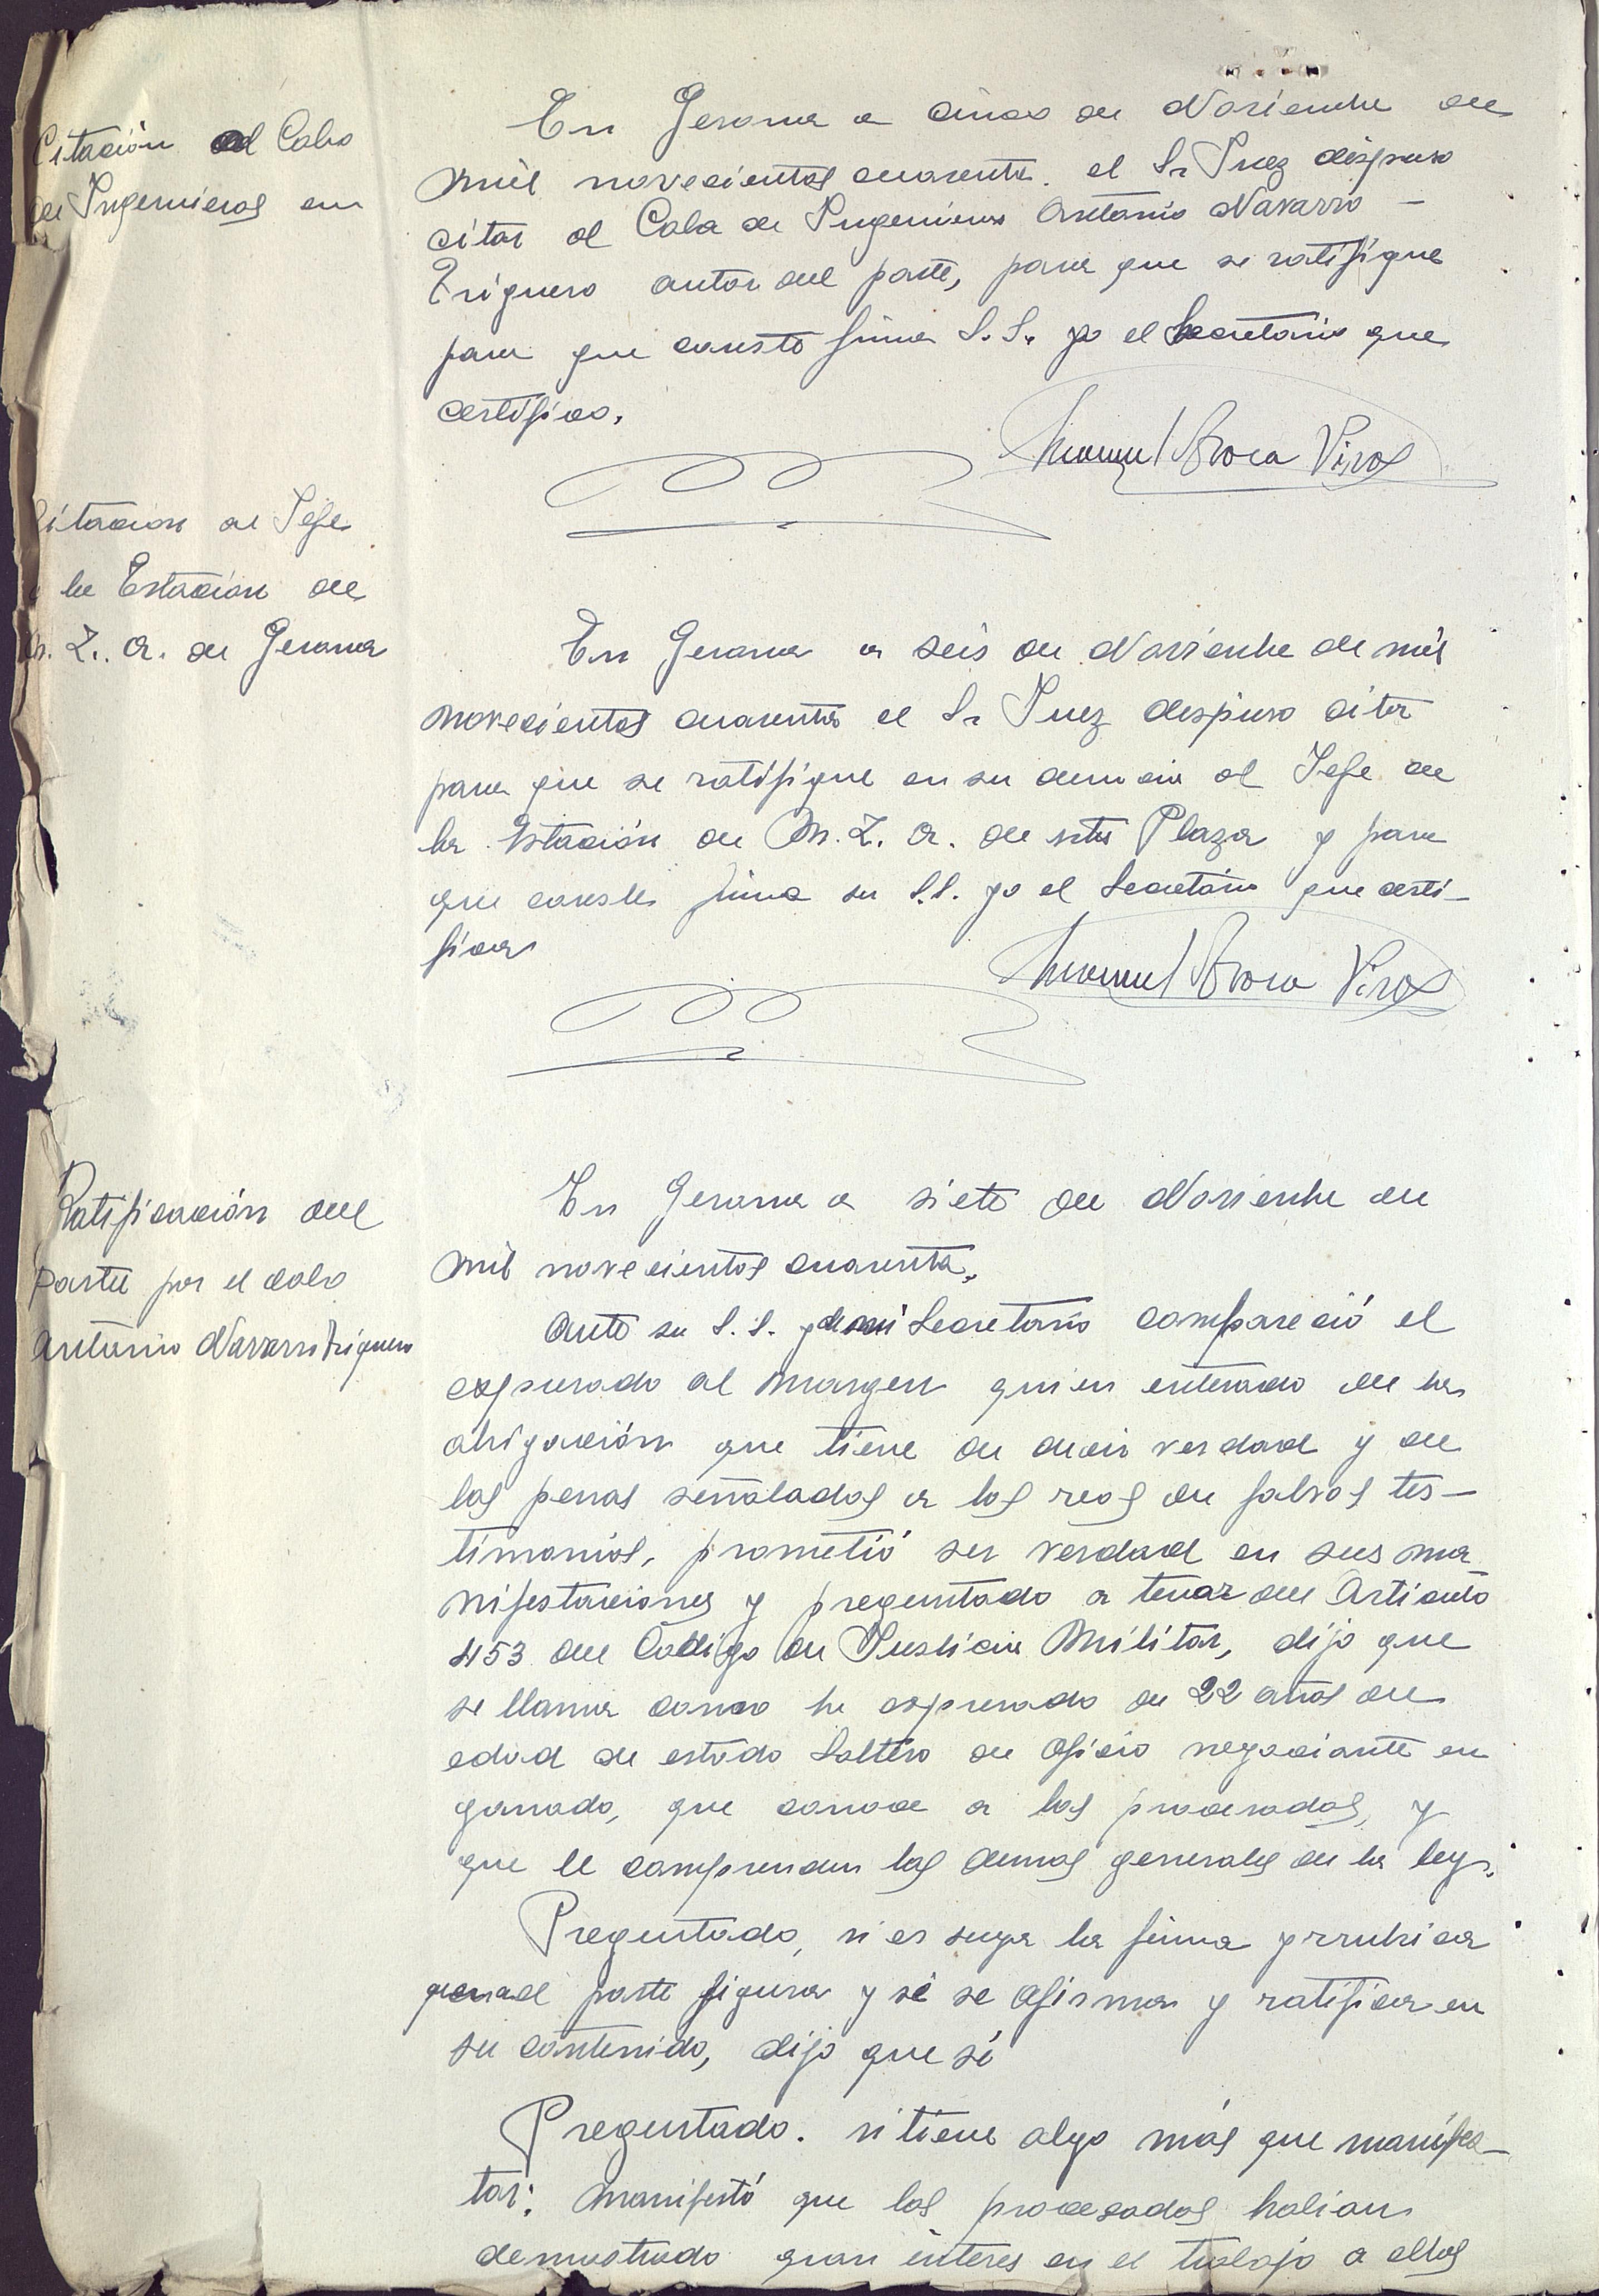 Citación al Cabo
de Ingenieros en
En Gerona a cinco de Noviembre de
mil novecientos cuarenta. el Sr Juez dispuso
citar al Cabo de Ingenieros Antonio Navarro -
Triguero autor del parte, para que se ratifique
para que conste firma S.S. yo el Secretario que
certifico.
Manuel Broca Viros
Citacion al Jefe
de la Estacion de
M. Z. A. de Gerona
En Gerona a seis de Noviembre de mil
novecientos cuarenta el Sr Juez dispuso citar
para que se ratifique en su denuncia al Jefe de
la Estación de M. Z. A. de esta Plaza y para
que conste firma su S.S. yo el Secretario que certi-
fica
Manuel Broca Viros
Ratificación del
Parte por el cabo
Antonio Navarro Triguero
En Gerona a siete de Noviembre de
mil novecientos cuarenta.
Ante su S.S. y de mi Secretario compareció el
expresado al margen quien enterado de la
obligación que tiene de decir verdad y de
las penas señaladas a los reos de falsos tes-
timonios, prometió ser verdad en sus ma
nifestaciones y preguntado a tenor del Articulo
453 del Codigo de Justicia Militar, dijo que
se llama como ha expresado de 22 años de
edad de estado Soltero de oficio negociante en
ganado, que conoce a los procesados, y
que le comprenden las demas generales de la ley.
Preguntado, si es suya la firma y rubrica
que en el parte figura y si se afirma y ratifica en
su contenido, dijo que sí
Preguntado. si tiene algo más que manifes-
tar: Manifestó que los procesados habian
demostrado gran interes en el trabajo a ellos